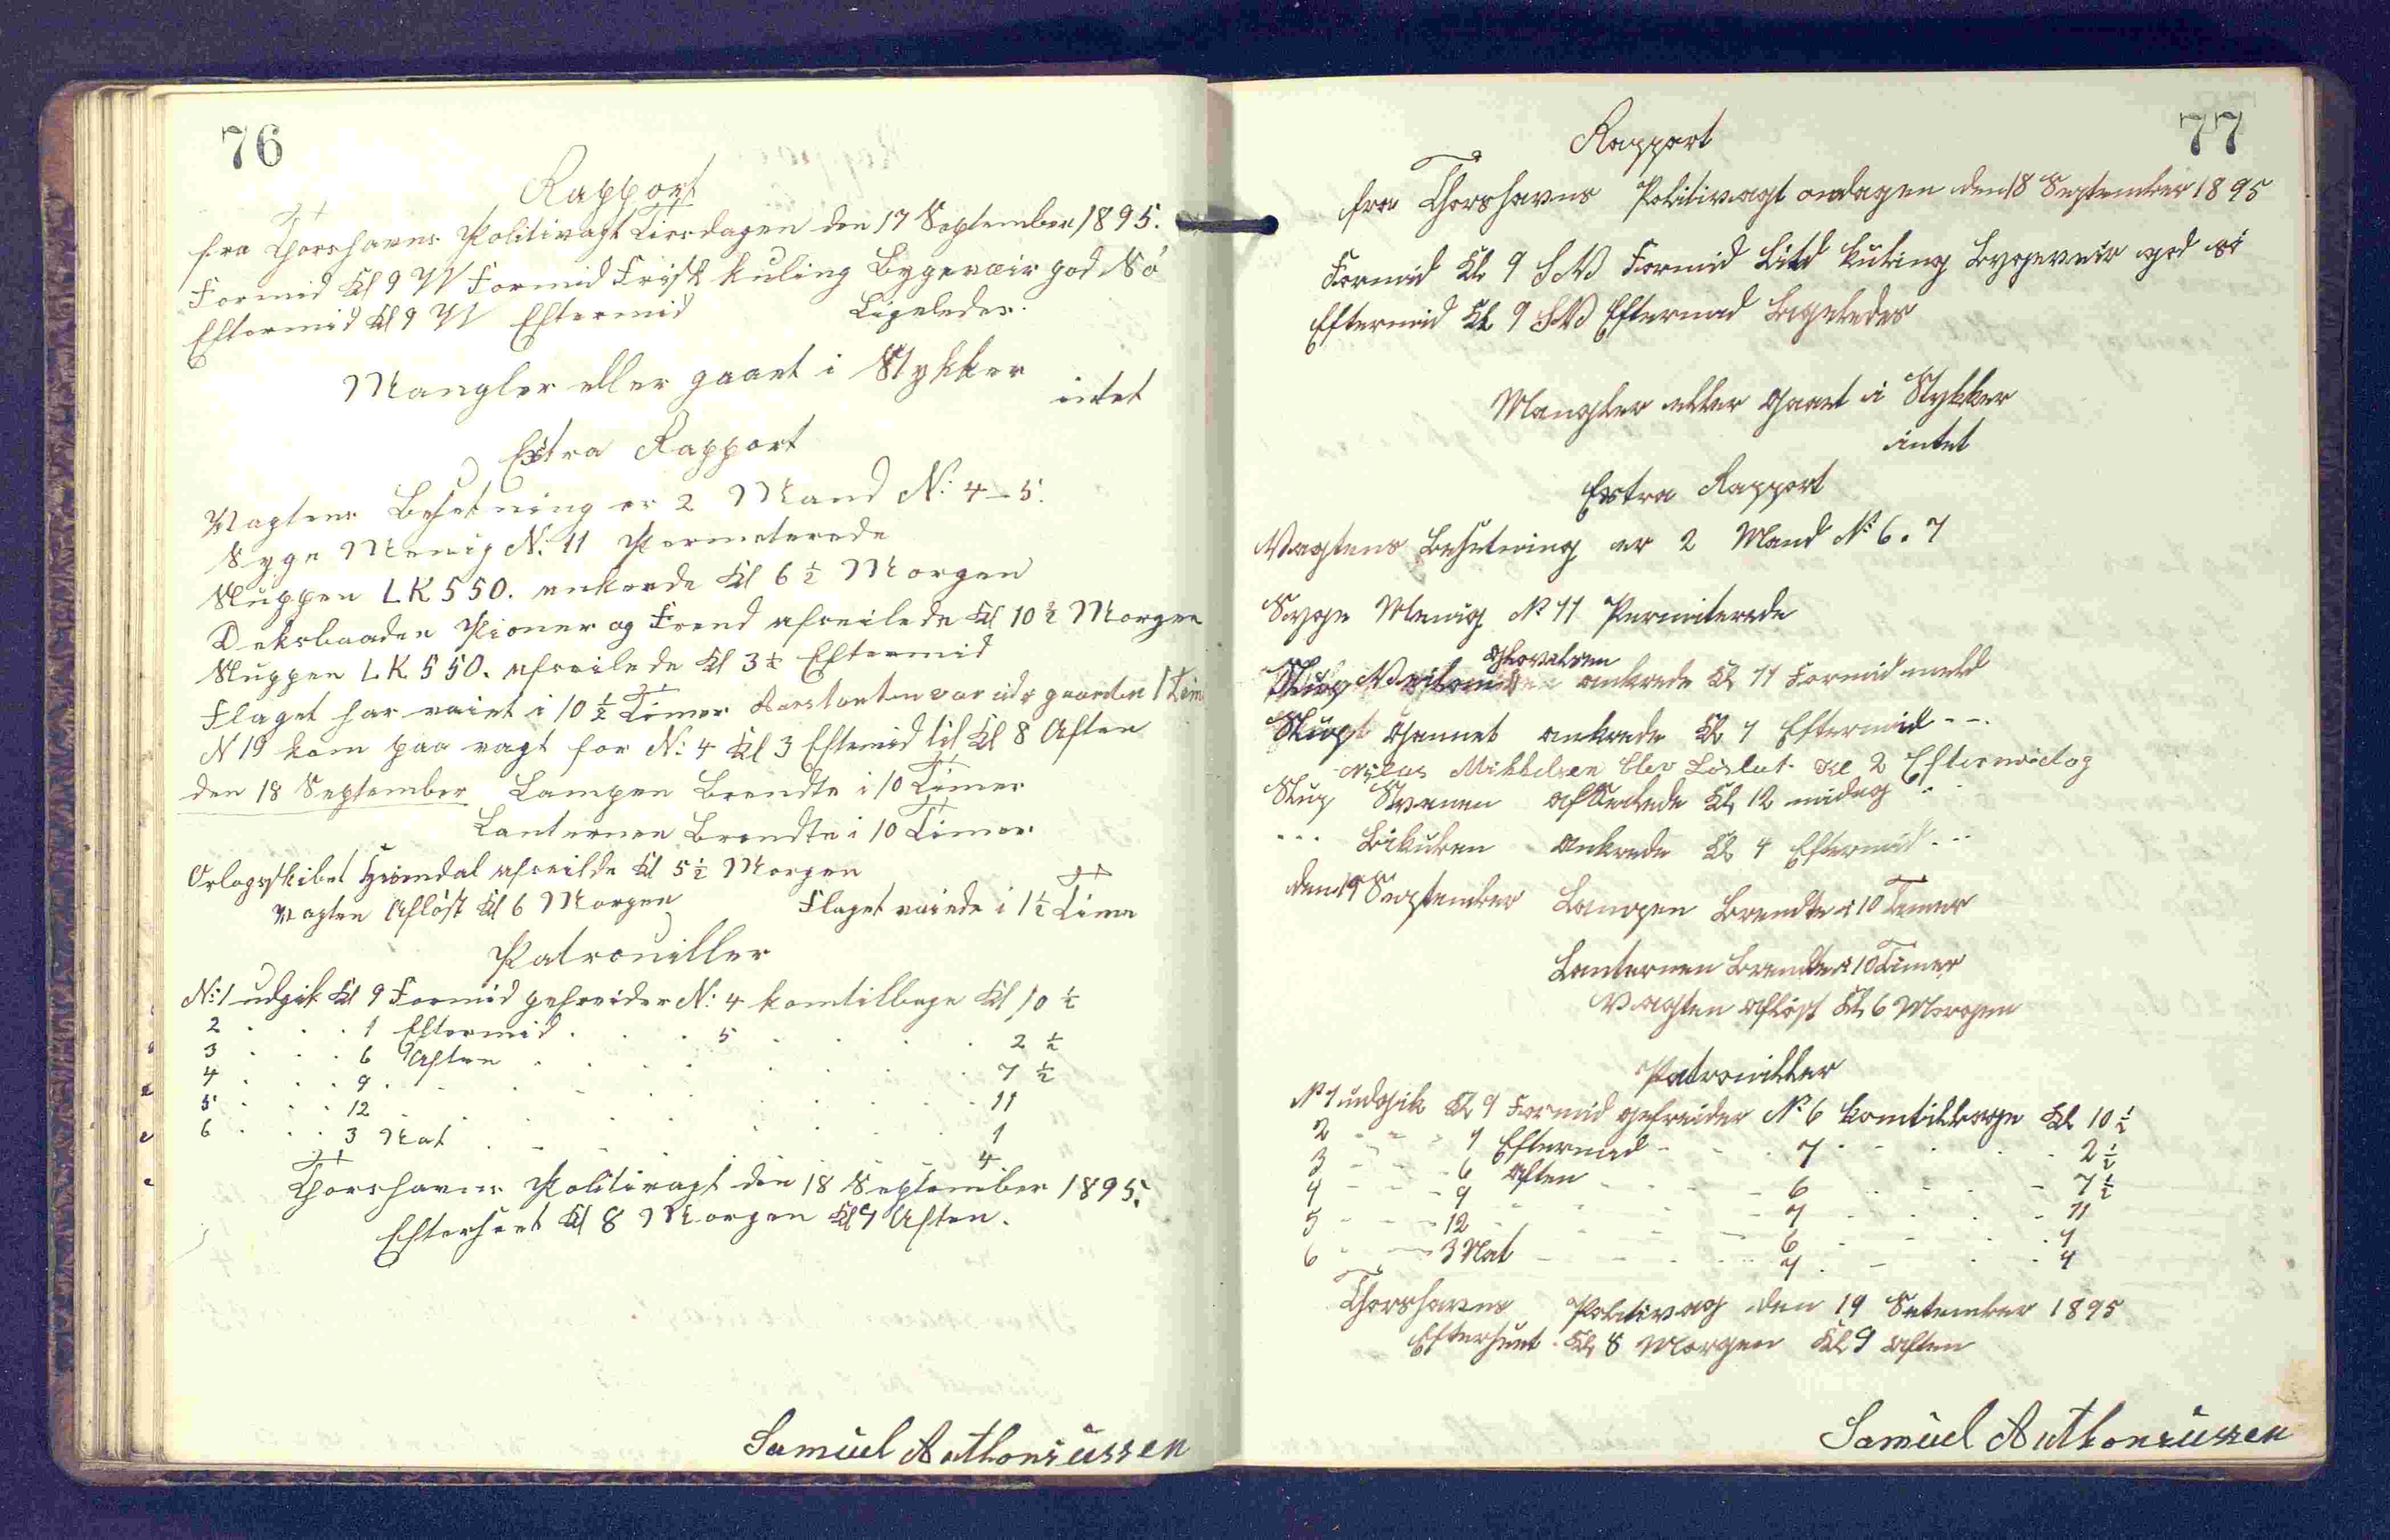 76
Rapport
fra Thorshavns Politivagt Tirsdagen den 17 September 1895.
Formid Kl 9 W Formid Frisk kuling Bygeveir god Sö
Eftermid Kl 9 W Eftermid Ligeledes.
Mangler eller gaaet i Stykker
intet
Extra Rapport
Vagtens Besetning er 2 Mand N: 4-5.
Syge Menig N: 11 Permeterede
Sluppen LK 550. ankerede Kl 6 1/2 Morgen
Deksbaaden Pioner og Frend afseilede Kl 10 1/2 Morgen
Sluppen LK 550. afseilede Kl 3 1/2 Eftermid
Flaget har vaiet i 10 1/2 Timer Aarstanten var ude gaaende 1 Time
N 19 kom paa vagt for N: 4 Kl 3 Eftemid til Kl 8 Aften
den 18 September Lampen Brendte i 10 Timer
Lanternen Brendte i 10 Timer
Orlogsskibet Heimdal afseilde Kl 5 1/2 Morgen
Vagten Aflöst Kl 6 Morgen Flaget vaiede i 1 1/2 Time
Patrouiller
N: 1 udgik Kl 9 Formid gefreider N: 4 komtilbage Kl 10 1/2
2 . . . 1 Eftermid . . . 5 . . . 2 1/2
3 . . . 6 Aften . . . 7 1/2
4 . . . 9 . . . 11
5 . . . 12 . . . 1
6 . . . 3 Nat . . . 4
Thorshavns Politivagt den 18 September 1895.
Efterseet Kl 8 Morgen Kl 9 Aften.
Samuel Anthoniussen
77
Rapport
fra Thorshavns Politivagt ondagen den 18 September 1895
Formid Kl 9 SW Formid Litd kuling Bygeveir god sö
Eftermid Kl 9 SW Eftermid Ligeledes
Mangler eller Gaaet i Stykker
intet
Extra Rapport
Vagtens Besetning er 2 Mand N: 6. 7
Syge Menig N: 11 Permiterede
Slup ankrede Kl 11 Formid
Slupt Gannet ankrede Kl 1 Eftermid - -.
Mikkelsen blev Löslat Kl 2 Eftermidag
Slup Svanen afseilede Kl 12 midag
- - - Bikuben ankrede Kl 4 Eftermid - - -
den 19 September Lampen Brendte i 10 Timer
Lanternen Brendte i 10 Timer
Vagten aflöst Kl 6 Morgen
Patrouiller
N: 1 udgik Kl 9 Formid gefreider N: 6 komtilbage Kl 10 1/2
2 - - - 1 Eftermid - - - 7 - - - 2 1/2
3 - - - 6 Aften - - - 6 - - - 7 1/2
4 - - - 9 - - - 7 - - - 11
5 - - - 12 - - - 6 - - - 1
6 - - - 3 Nat - - - 7 - - - 4
Thorshavns Politivag den 19 Setember 1895
Efterseet Kl 8 Morgen Kl 9 Aften
Samuel Anthoniussen